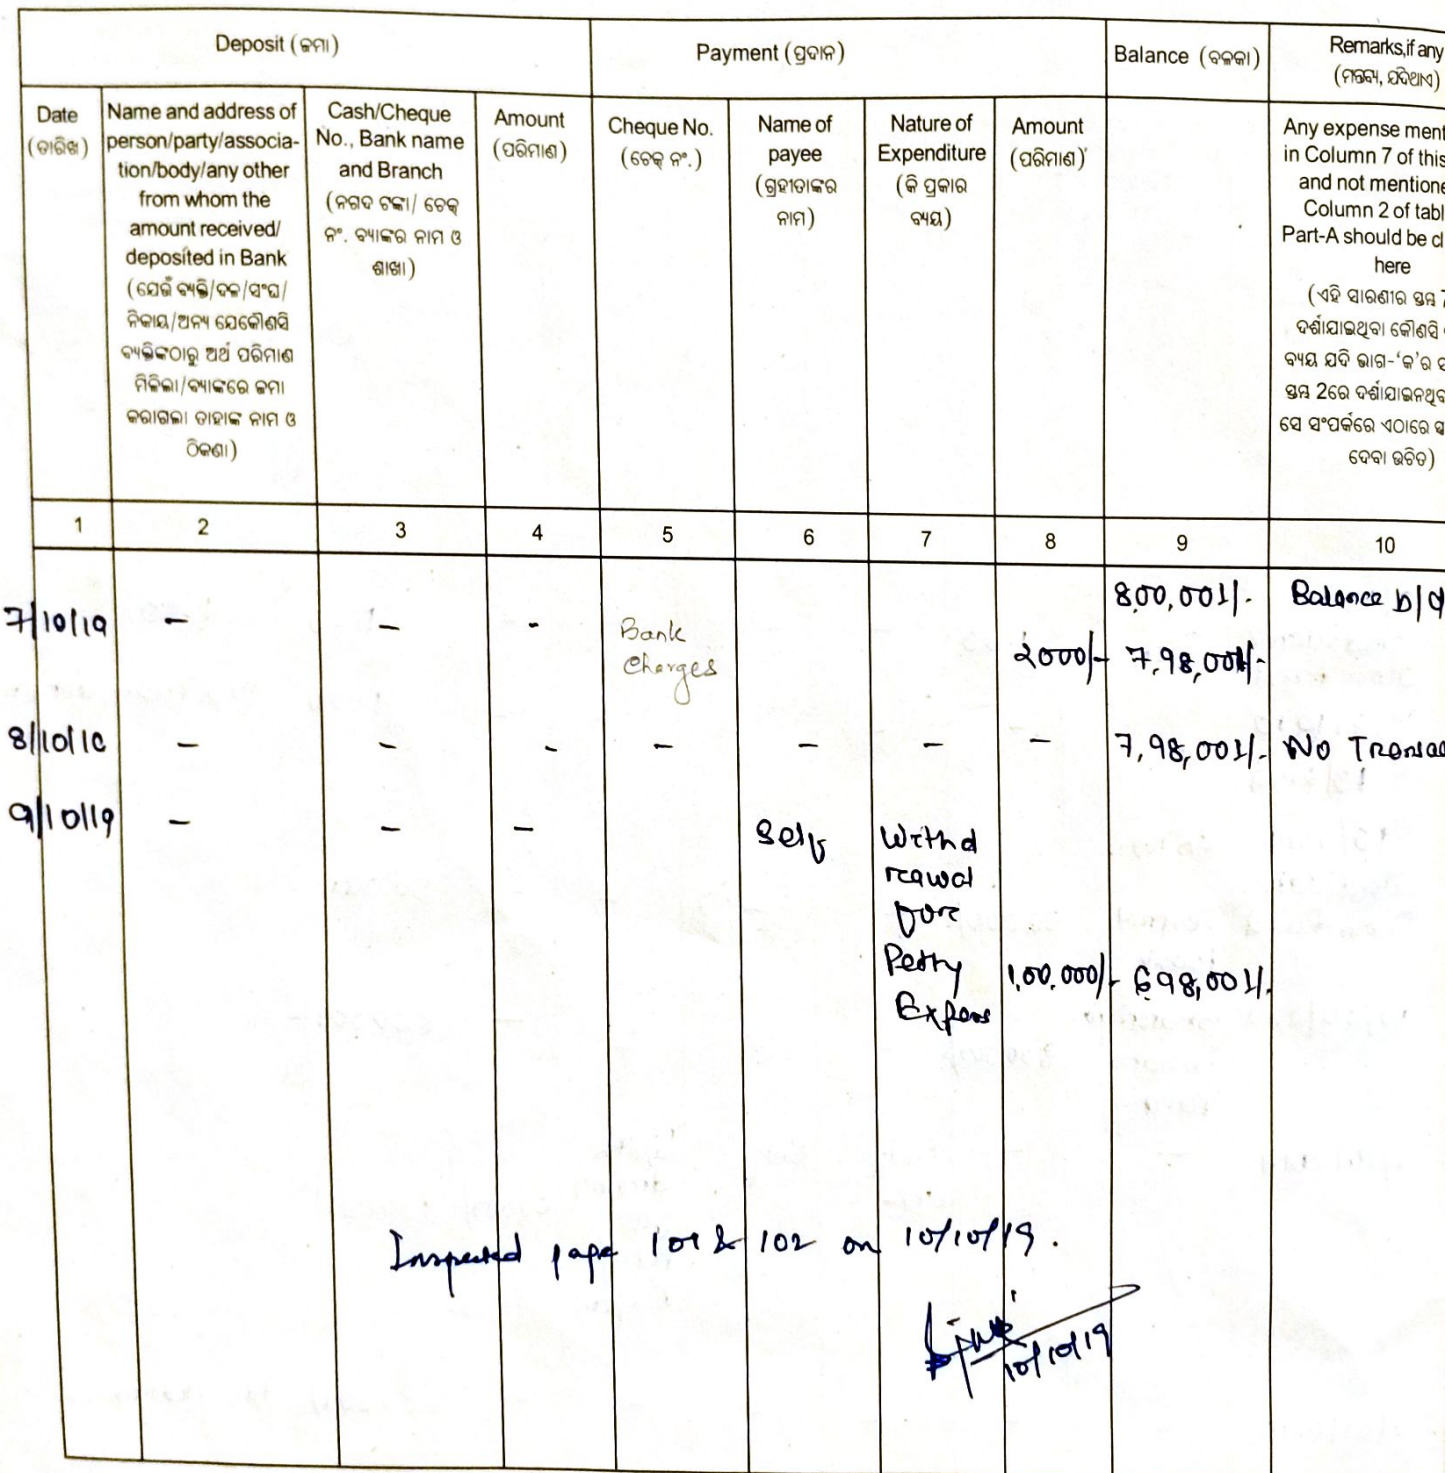 Deposit (ଜମା) Payment (ପ୍ରଦାନ) Balance (ବଳକା) Remarks,if any
(ମନ୍ତବ୍ୟ, ଯଦିଥାଏ)
Date
(ତାରିଖ)
Name and address of
person/party/associa-
tion/body/any other
from whom the
amount received/
deposited in Bank
(ଯେଉଁ ବ୍ୟକ୍ତି/ଦଳ/ସଂଘ/
ନିକାୟ/ଅନ୍ୟ ଯେକୌଣସି
ବ୍ୟକ୍ତିଙ୍କଠାରୁ ଅର୍ଥ ପରିମାଣ
ମିଳିଲା/ବ୍ୟାଙ୍କରେ ଜମା
କରାଗଲା ତାହାଙ୍କ ନାମ ଓ
ଠିକଣା)
Cash/Cheque
No., Bank name
and Branch
(ନଗଦ ଟଙ୍କା/ ଚେକ୍
ନଂ. ବ୍ୟାଙ୍କର ନାମ ଓ
ଶାଖା)
Amount
(ପରିମାଣ)
Cheque No.
(ଚେକ୍ ନଂ.)
Name of
payee
(ଗ୍ରହୀତାଙ୍କର
ନାମ)
Nature of
Expenditure
(କି ପ୍ରକାର
ବ୍ୟୟ)
Amount
(ପରିମାଣ)
Any expense ment
in Column 7 of this
and not mentione
Column 2 of tabl
Part-A should be cl
here
(ଏହି ସାରଣୀର ସ୍ତମ୍ଭ 7
ଦର୍ଶାଯାଇଥିବା କୌଣସି
ବ୍ୟୟ ଯଦି ଭାଗ-‘କ’ର ସ
ସ୍ତମ୍ଭ 2ରେ ଦର୍ଶାଯାଇନଥିବ
ସେ ସଂପର୍କରେ ଏଠାରେ ସ୍ପ
ଦେବା ଉଚିତ)
1 2 3 4 5 6 7 8 9 10
8,00,001/- Balance b/d
7/10/19 - - - Bank
Charges
2000/- 7,98,001/-
8/10/19 - - - - - - - 7,98,001/- No Transac
9/10/19 - - - Self Withd
rawal
for
Petty 1,00,000/- 6,98,001/-
Expens
Inspected page 101 & 102 on 10/10/19.
10/10/19